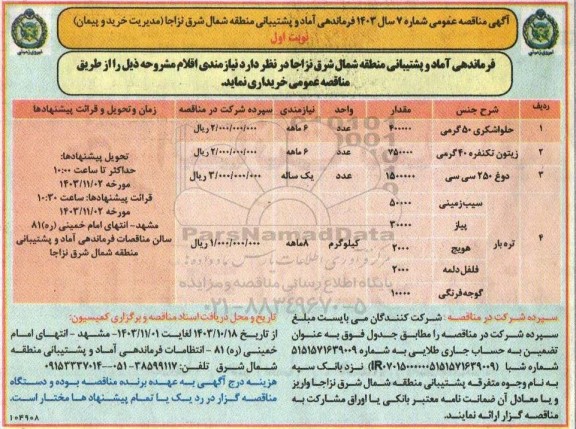 آگهی مناقصه عمومی شماره ۷ سال ۱۴۰۳ فرماندهی آماد و پشتیبانی منطقه شمال شرق نزاجا (مدیریت خرید و پیمان)
نوبت اول
فرماندهی آماد و پشتیبانی منطقه شمال شرق نزاجا در نظر دارد نیازمندی اقلام مشروحه ذیل را از طریق
مناقصه عمومی خریداری نماید.
ردیف شرح جنس مقدار واحد نیازمندی سپرده شرکت در مناقصه زمان و تحویل و قرائت پیشنهادها
۱ حلواشکری ۵۰ گرمی ۴۰۰۰۰۰ عدد ۶ ماهه ۲/۰۰۰/۰۰۰/۰۰۰ ریال
۲ زیتون تکنفره ۴۰ گرمی ۷۵۰۰۰۰ عدد ۶ ماهه ۲/۰۰۰/۰۰۰/۰۰۰ ریال
۳ دوغ ۲۵۰ سی سی ۱۵۰۰۰۰۰ عدد یک ساله ۳/۰۰۰/۰۰۰/۰۰۰ ریال
۴ تره بار کیلوگرم ۸ماهه ۱/۰۰۰/۰۰۰/۰۰۰ ریال
سیب‌زمینی ۵۰۰۰۰
پیاز ۳۰۰۰۰
هویج ۲۰۰۰
فلفل‌دلمه ۲۰۰۰
گوجه‌فرنگی ۱۰۰۰۰
تحویل پیشنهادها:
حداکثر تا ساعت ۱۰:۰۰
مورخه ۱۴۰۳/۱۱/۰۲
قرائت پیشنهادها: ساعت ۱۰:۳۰
مورخه ۱۴۰۳/۱۱/۰۲
مشهد- انتهای امام خمینی (ره)۸۱
سالن مناقصات فرماندهی آماد و پشتیبانی
منطقه شمال شرق نزاجا
ParsNamadData
پایگاه اطلاع رسانی مناقصه و مزایده
۰۲۱-۸۸۳۴۹۶۷۰-۵
سپرده شرکت در مناقصه : شرکت کنندگان می بایست مبلغ
سپرده شرکت در مناقصه را مطابق جدول فوق به عنوان
تضمین به حساب جاری طلایی به شماره ۵۱۵۱۵۷۱۶۳۹۰۰۹
شماره شبا (IR۰۷۰۱۵۰۰۰۰۰۰۵۱۵۱۵۷۱۶۳۹۰۰۹) نزد بانک سپه
به نام وجوه متفرقه پشتیبانی منطقه شمال شرق نزاجا واریز
و یا معادل آن ضمانت نامه معتبر بانکی یا اوراق مشارکت به
مناقصه گزار ارائه نمایند.
تاریخ و محل دریافت اسناد مناقصه و برگزاری کمیسیون:
از تاریخ ۱۴۰۳/۱۰/۱۸ لغایت ۱۴۰۳/۱۱/۰۱- مشهد - انتهای امام
خمینی (ره) ۸۱ - انتظامات فرماندهی آماد و پشتیبانی منطقه
شمال شرق تلفن: ۳۸۵۹۹۱۱۷-۰۵۱ -۰۹۱۵۳۳۳۷۰۱۴
هزینه درج آگهی به عهده برنده مناقصه بوده و دستگاه
مناقصه گزار در رد یک یا تمام پیشنهاد ها مختار است.
۱۰۴۹۰۸